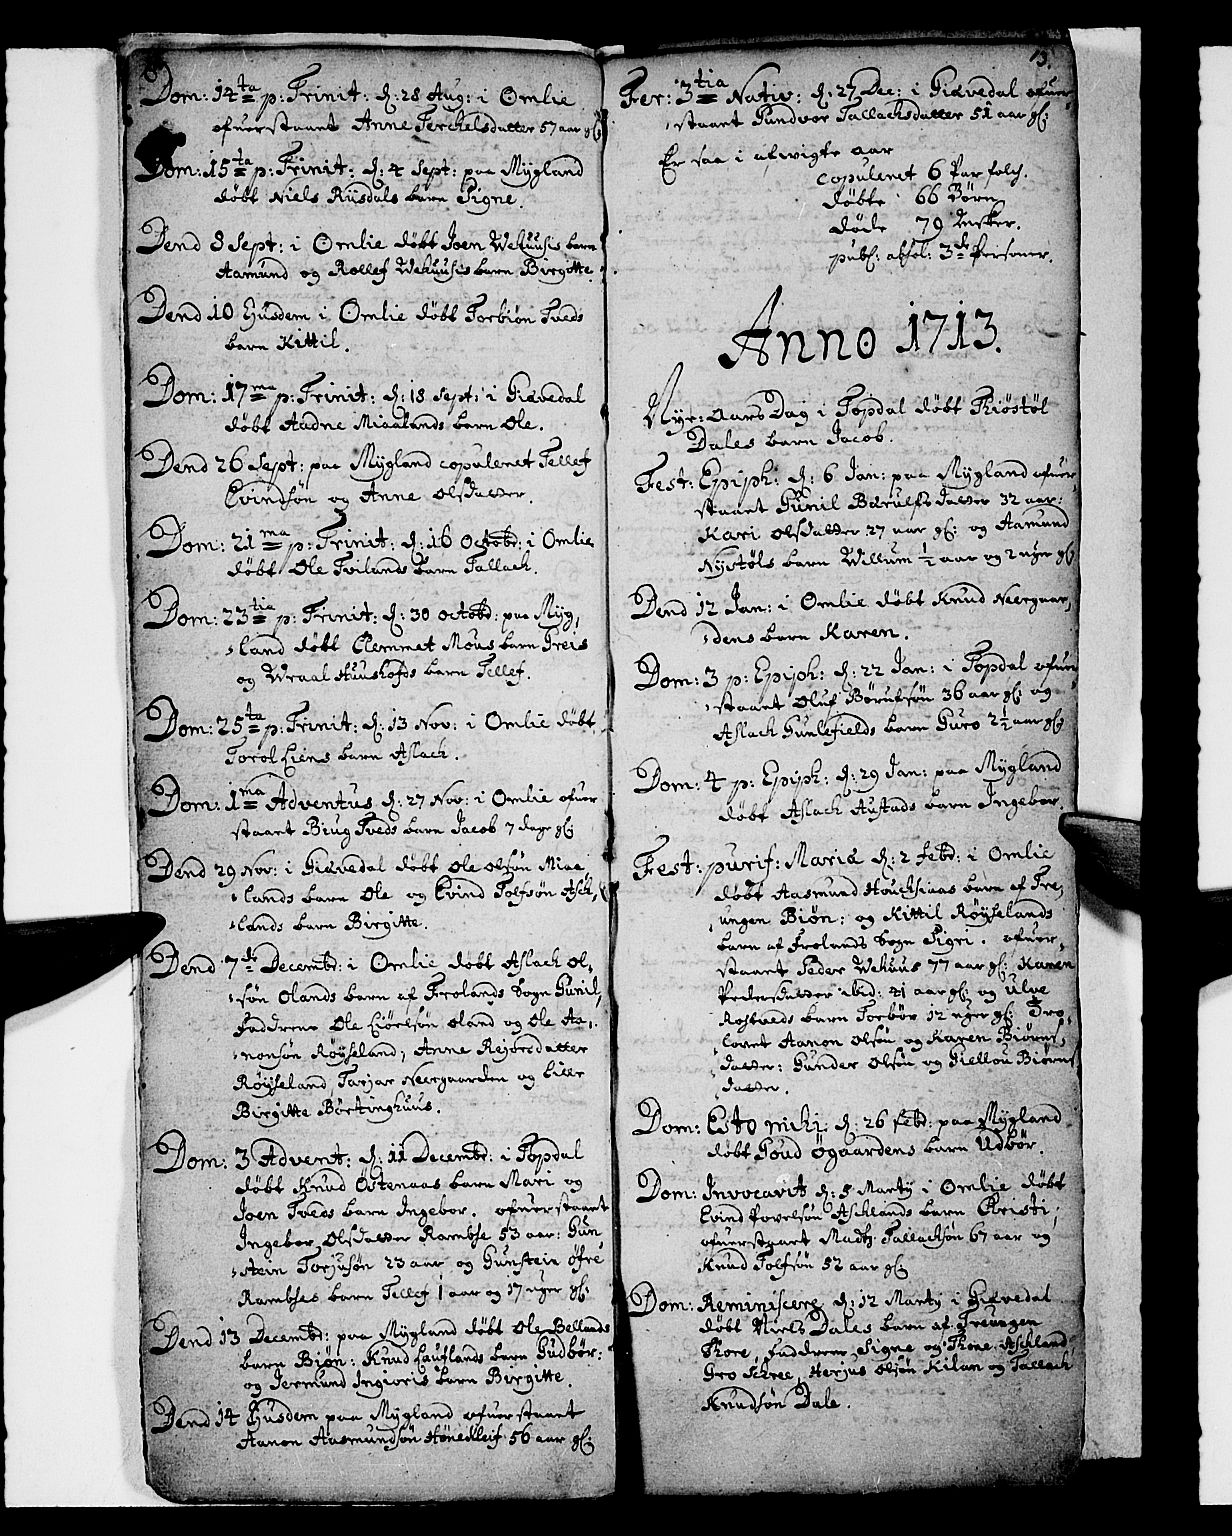 Dom: 14ta p: Trinit: d: 28 Aug: i Omlie
ofuerstaaet Anne Terchelsdatter 57 aar gl:
Dom: 15ta p: Trinit: d: 4 Sept: paa Mygland
døbt Niels Riisdals barn Signe.
Dend 8 Sept: i Omlie døbt Joen Wehuusis barn
Aamund og Rollef Wehuusis barn Birgitte.
Dend 10 Ejusdem i Omlie døbt Torbiøn Tveds
barn Kittil.
Dom: 17ma p: Trinit: d: 18 Sept: i Giævedal
døbt Aadne Miaalands barn Ole.
Dend 26 Sept: paa Mygland copuleret Tellef
Evindsøn og Anne Olsdatter.
Dom: 21ma p: Trinit: d: 16 Octobr: i Omlie
døbt Ole Tvilands barn Tallach.
Dom: 23tia p: Trinit: d: 30 Octobr: paa Myg,
land døbt Clemmet Møus barn Freis
og Wraal Huushofds barn Tellef.
Dom: 25ta p: Trinit: d: 13 Nov: i Omlie døbt
Torol Liens barn Aslach.
Dom: 1ma Adventus d: 27 Nov: i Omlie ofuer
staaet Biug Tveds barn Jacob 7 dage gl:
Dend 29 Nov: i Giævedal døbt Ole Olsøn Miae
lands barn Ole og Evind Tolfsøn Asch,
lands barn Birgitte.
Dend 7de Decembr: i Omlie døbt Aslach Ol-
søn Olands barn af Frolands Sogn Gunil,
Faddrene Ole Liørelsøn Oland og Ole Aa,
nonsøn Røyseland, Anne Rejersdatter
Røyseland Tarjer Neergaarden og Lille
Birgitte Børtinghuus.
Dom: 3 Advent: d: 11 Decembr: i Topdal
døbt Knud Østenaas barn Mari og
Joen Tveds barn Ingebor. ofuerstaaet
Ingebor Olsdatter Rambse 53 aar: Gun
stein Torjusøn 23 aar og Gunstein Øfre
Rambses barn Tellef 1 aar og 17 uger gl:
Dend 13 Decembr: paa Mygland døbt Ole Bellands
barn Biøn: Knud Lauflands barn Gudbør:
og Jermund Ingioris barn Birgitte.
Dend 14 Ejusdem paa Mygland ofuerstaaet
Aanon Aasmundsøn Hønekleif 56 aar gl:
13.
Fer: 3tia Nativ: d: 27 Dec: i Giævedal ofuer
staaet Gundvor Tallachsdatter 51 aar gl:
Er saa i afwigte aar
copuleret 6 Par folch.
døbte 66 Børn
døde 79 Msker.
publ: absol: 3de Personer.
Anno 1713.
Nye-Aars Dag i Topdal døbt Kiøstøl
Dales barn Jacob.
Fest: Epiph: d: 6 Jan: paa Mygland ofuer
staaet Gunil Bærulfs datter 32 aar:
Kari Olsdatter 27 aar gl: og Aamund
Nystøls barn Willum ½ aar og 2 uger gl:
Dend 12 Jan: i Omlie døbt Knud Neergaar,
dens barn Karen.
Dom: 3 p: Epiph: d: 22 Jan: i Topdal ofuer
staaet Oluf Børulfsøn 36 aar gl: og
Aslach Gunlefields barn Guro 2½ aar gl:
Dom: 4 p: Epiph: d: 29 Jan: paa Mygland
døbt Aslach Austads barn Ingebor.
Fest: purif: Mariæ d: 2 Febr: i Omlie
døbt Aasmund Houchsnaas barn af Tre,
ungen Biøn: og Kittil Røyselands
barn af Frolands Sogn Sigri. ofuer,
staaet Peder Wehuus 77 aar gl: Karen
Pedersdatter ibid: 41 aar gl: og Ulve
Rostveds barn Torbør 12 uger gl: Tro,
lovet Aanon Olsøn og Karen Biørns,
datter: Gunder Olsøn og Giellou Biørns
datter.
Dom: Esto mihi d: 26 Febr: paa Mygland
døbt Goud Øgaardens barn Udbør.
Dom: Invocavit d: 5 Martij i Omlie døbt
Evind Povelsøn Aschlands barn Christi;
ofuerstaaet Madtz Tallachsøn 67 aar og
Knud Tolfsøn 52 aar gl:
Dom: Reminiscere d: 12 Martij i Giævedal
døbt Niels Dales barn af Treungen
Tore, Faddrene Signe og Tone Aschland
Gro Schree, Herjus Olsøn Kilan og Tallach
Knudsøn Dale.